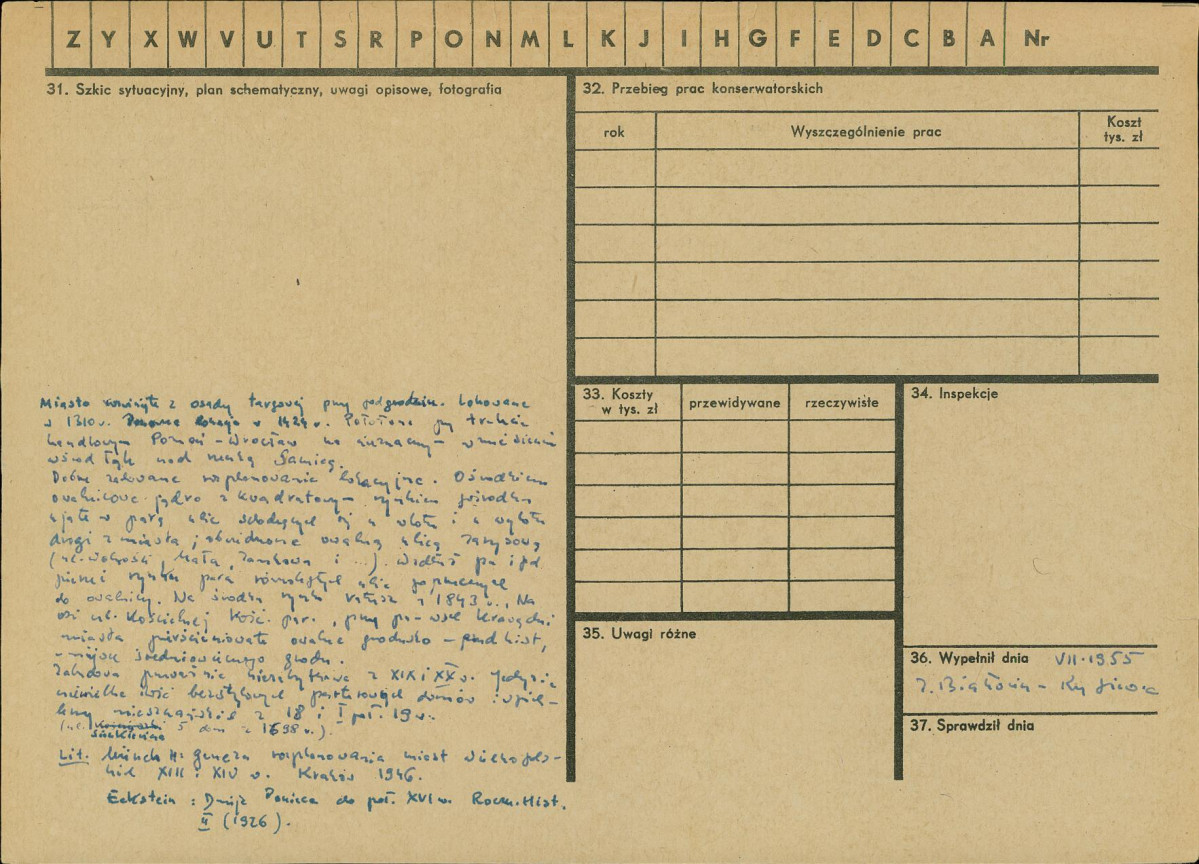 Z Y X W V U T S R P O N M L K J I H G F E D C B A Nr
31. Szkic sytuacyjny, plan schematyczny, uwagi opisowe, fotografia
Miasto z osady targowej przy podgrodziu. Lokowane
w 1310 r. Ponowna lokacja w 1424 r. Położone przy trakcie
handlowym Poznań - Wrocław na nieznacznym wzniesieniu
wśród łąk nad rzeką Samicą.
Dobrze zachowane rozplanowanie lokacyjne. Ośrodkiem
owalnicowe jądro z kwadratowym rynkiem pośrodku
ujęte w parę ulic schodzących się u wlotu i u wylotu
drogi z miasta, obwiedzione owalną ulicą
(ul. Wolności, Mała, Zamkowa i ...). Wzdłuż pn i pd
pierzei rynku para równoległych ulic poprzecznych
do owalnicy. Na środku rynku ratusz z 1843 r., Na
osi ul. Kościelnej kość. par., przy pn-wsch krawędzi
miasta pierścieniowate owalne grodzisko -
- miejsce średniowiecznego grodu.
Zabudowa przeważnie niezabytkowa z XIX i XX w. Jedynie
niewielka ilość bezstylowych parterowych domów
mieszczańskich z 18 i I poł. 19 w.
(ul. 5 dom z 1698 r.).
Lit. Münch H: geneza rozplanowania miast wielkopols-
kich XIII i XIV w. Kraków 1946.
Eckstein: Dzieje Ponieca do poł. XVI w. Roczn. Hist.
II (1926).
32. Przebieg prac konserwatorskich
rok Wyszczególnienie prac Koszt tys. zł
33. Koszty w tys. zł przewidywane rzeczywiste
34. Inspekcje
35. Uwagi różne
36. Wypełnił dnia VII-1955
37. Sprawdził dnia